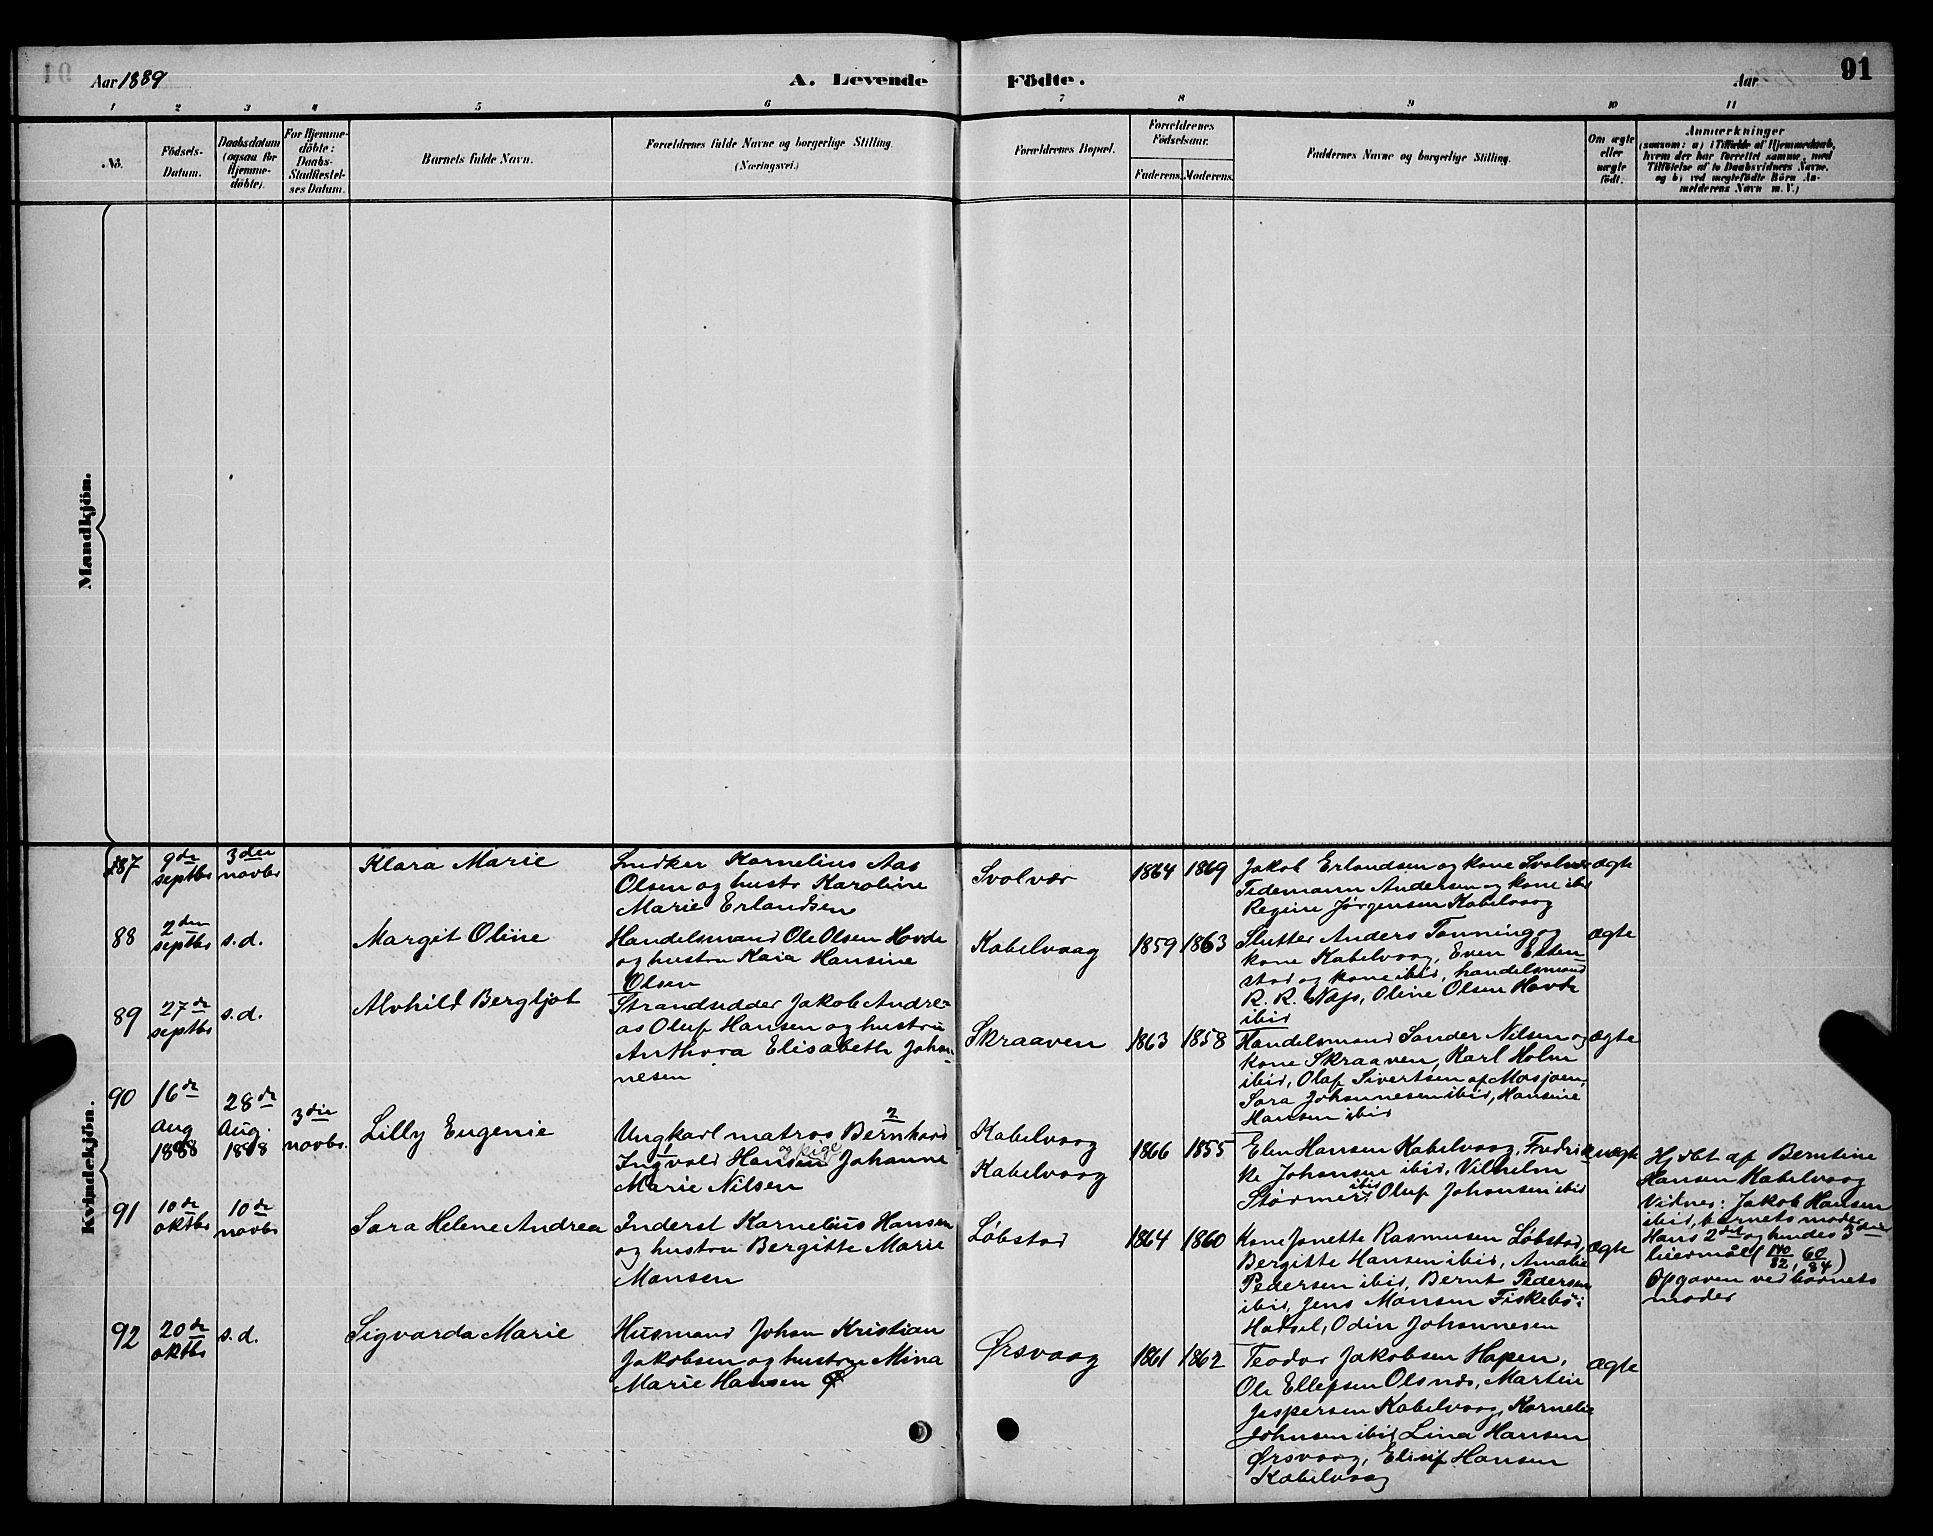 Aar 1889
A. Levende
Födte.
Aar
91
1 2 3 4 5 6 7 8 9 10 11
No.
Födsels-
Datum.
Daabsdatum
(ogsaa for
Hjemme-
döbte).
For Hjemme-
döbte:
Daabs-
Stadfæstel-
ses Datum.
Barnets fulde Navn.
Forældrenes fulde Navne og borgerlige Stilling.
(Næringsvei.)
Forældrenes Bopæl.
Forældrenes
Födselsaar.
Faderens. Moderens.
Faddernes Navne og borgerlige Stilling.
Om ægte
eller
uægte
født.
Anmærkninger
(saasom: a) i Tilfælde af Hjemmedaab,
hvem der har forrettet samme, med
Tilføielse af to Daabsvidners Navne.
og b) ved uægtefødte Börn An-
melderens Navn m. V.)
Mandkjön.
Kvindekjön.
87
9de
septbr
3die
novbr
Klara Marie
Snedker Kornelius Aas
Olsen og hustr Karoline
Marie Erlandsen
Svolvær
1864 1869
Jakob Erlandsen og kone Svolvær
Tidemann Andersen og kone ibid
Regine Jørgensen Kabelvaag
ægte
88
2den
septbr
s.d.
Margit Oline
Handelsmand Ole Olsen Hovde
og hustru Kaia Hansine
Olsen
Kabelvaag
1859 1863
Slutter Anders Tonning og
kone Kabelvaag, Even Esten-
stad og kone ibid, handelsmand
R. R. Næss, Oline Olsen Hovde
ibid
ægte
89
27de
septbr
s.d.
Alvhild Bergljot
Strandsidder Jakob Andre-
as Oluf Hansen og hustru
Anthora Elisabeth Johan-
nesen
Skraaven
1863 1858
Handelsmand Sander Nilsen og
kone Skraaven, Karl Holm
ibid, Olaf Sivertsen af Mosjøen,
Sara Johannesen ibid, Hansine
Hansen ibid
ægte
90
16de
Aug
1888
28de
Aug.
1888
3die
novbr.
Lilly Eugenie
Ungkarl matros Bernhard
Ingvald Hansen og pige Johanne
Marie Nilsen
Kabelvaag
Kabelvaag
1866 1855
Elen Hansen Kabelvaag, Fredrik-
ke Johansen ibid, Vilhelm
Størmer ibid, Oluf Johansen ibid
uægte
Hjdbt af Berntine
Hansen Kabelvaag
Vidner: Jakob Hansen
ibid, barnets moder
Hans 2det og hendes 3die
leiermål (140/82, 60/84)
Opgaven ved barnets
moder
91
10de
oktbr
10de
novbr
Sara Helene Andrea
Inderst Kornelius Hansen
og hustru Bergitte Marie
Monsen
Løbstad
1864 1860
Kone Janette Rasmussen Løbstad,
Bergitte Hansen ibid, Amalie
Pedersen ibid, Bernt Pedersen
ibid, Jens Monsen Fiskebø i
Hadsel, Odin Johannesen
ægte
92
20de
oktbr
s.d.
Sigvarda Marie
Husmand Johan Kristian
Jakobsen og hustru Mina
Marie Hansen
Ørsvaag
1861 1862
Teodor Jakobsen Hopen,
Ole Ellefsen Olsnes, Martin
Jespersen Kabelvaag, Kornelie
Johnsen ibid, Lina Hansen
Ørsvaag, Elisif Hansen
Kabelvaag
ægte